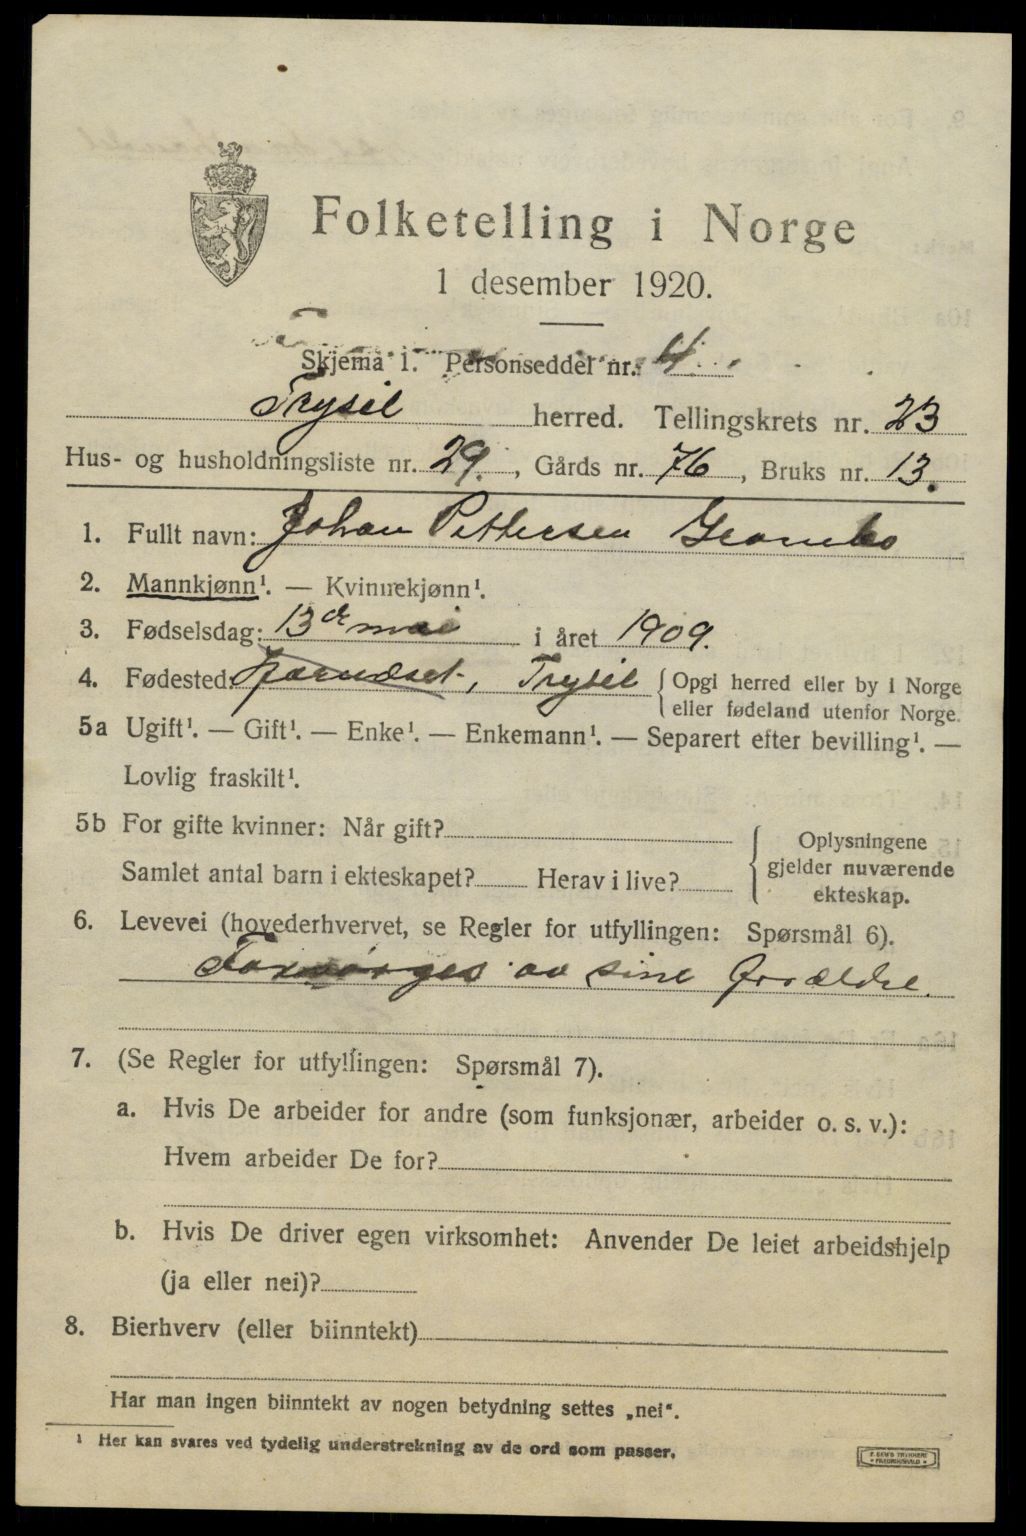 Folketelling i Norge
1 desember 1920.
Skjema 1. Personseddel nr. 4
Trysil herred. Tellingskrets nr. 23
Hus- og husholdningsliste nr. 29. , Gårds nr. 76 , Bruks nr. 13.
1. Fullt navn: Johan Pettersen
2. Mannkjønn¹. — Kvinnekjønn¹.
3. Fødselsdag: 13de mai i året 1909.
4. Fødested: , Trysil { Opgi herred eller by i Norge
eller fødeland utenfor Norge.
5a Ugift¹. — Gift¹. — Enke¹. — Enkemann¹. — Separert efter bevilling¹. —
Lovlig fraskilt¹.
5b For gifte kvinner: Når gift?
Samlet antal barn i ekteskapet? Herav i live?
{ Oplysningene
gjelder nuværende
ekteskap.
6. Levevei (hovederhvervet, se Regler for utfyllingen: Spørsmål 6).
Forsørges av sine forældre.
7. (Se Regler for utfyllingen: Spørsmål 7).
a. Hvis De arbeider for andre (som funksjonær, arbeider o. s. v.):
Hvem arbeider De for?
b. Hvis De driver egen virksomhet: Anvender De leiet arbeidshjelp
(ja eller nei)?
8. Bierhverv (eller biinntekt)
Har man ingen biinntekt av nogen betydning settes „nei“.
¹ Her kan svares ved tydelig understrekning av de ord som passer.